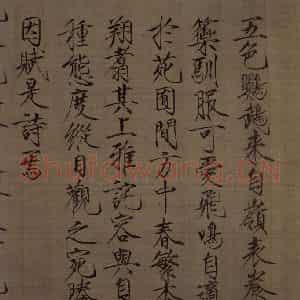 五色鸚鵡來自嶺表養
籞馴服可愛飛鳴自適
於苑囿間方中春繁杏
翔翥其上雅詫容與自
種態度縱目觀之宛勝
因賦是詩焉
Shufawang.CN